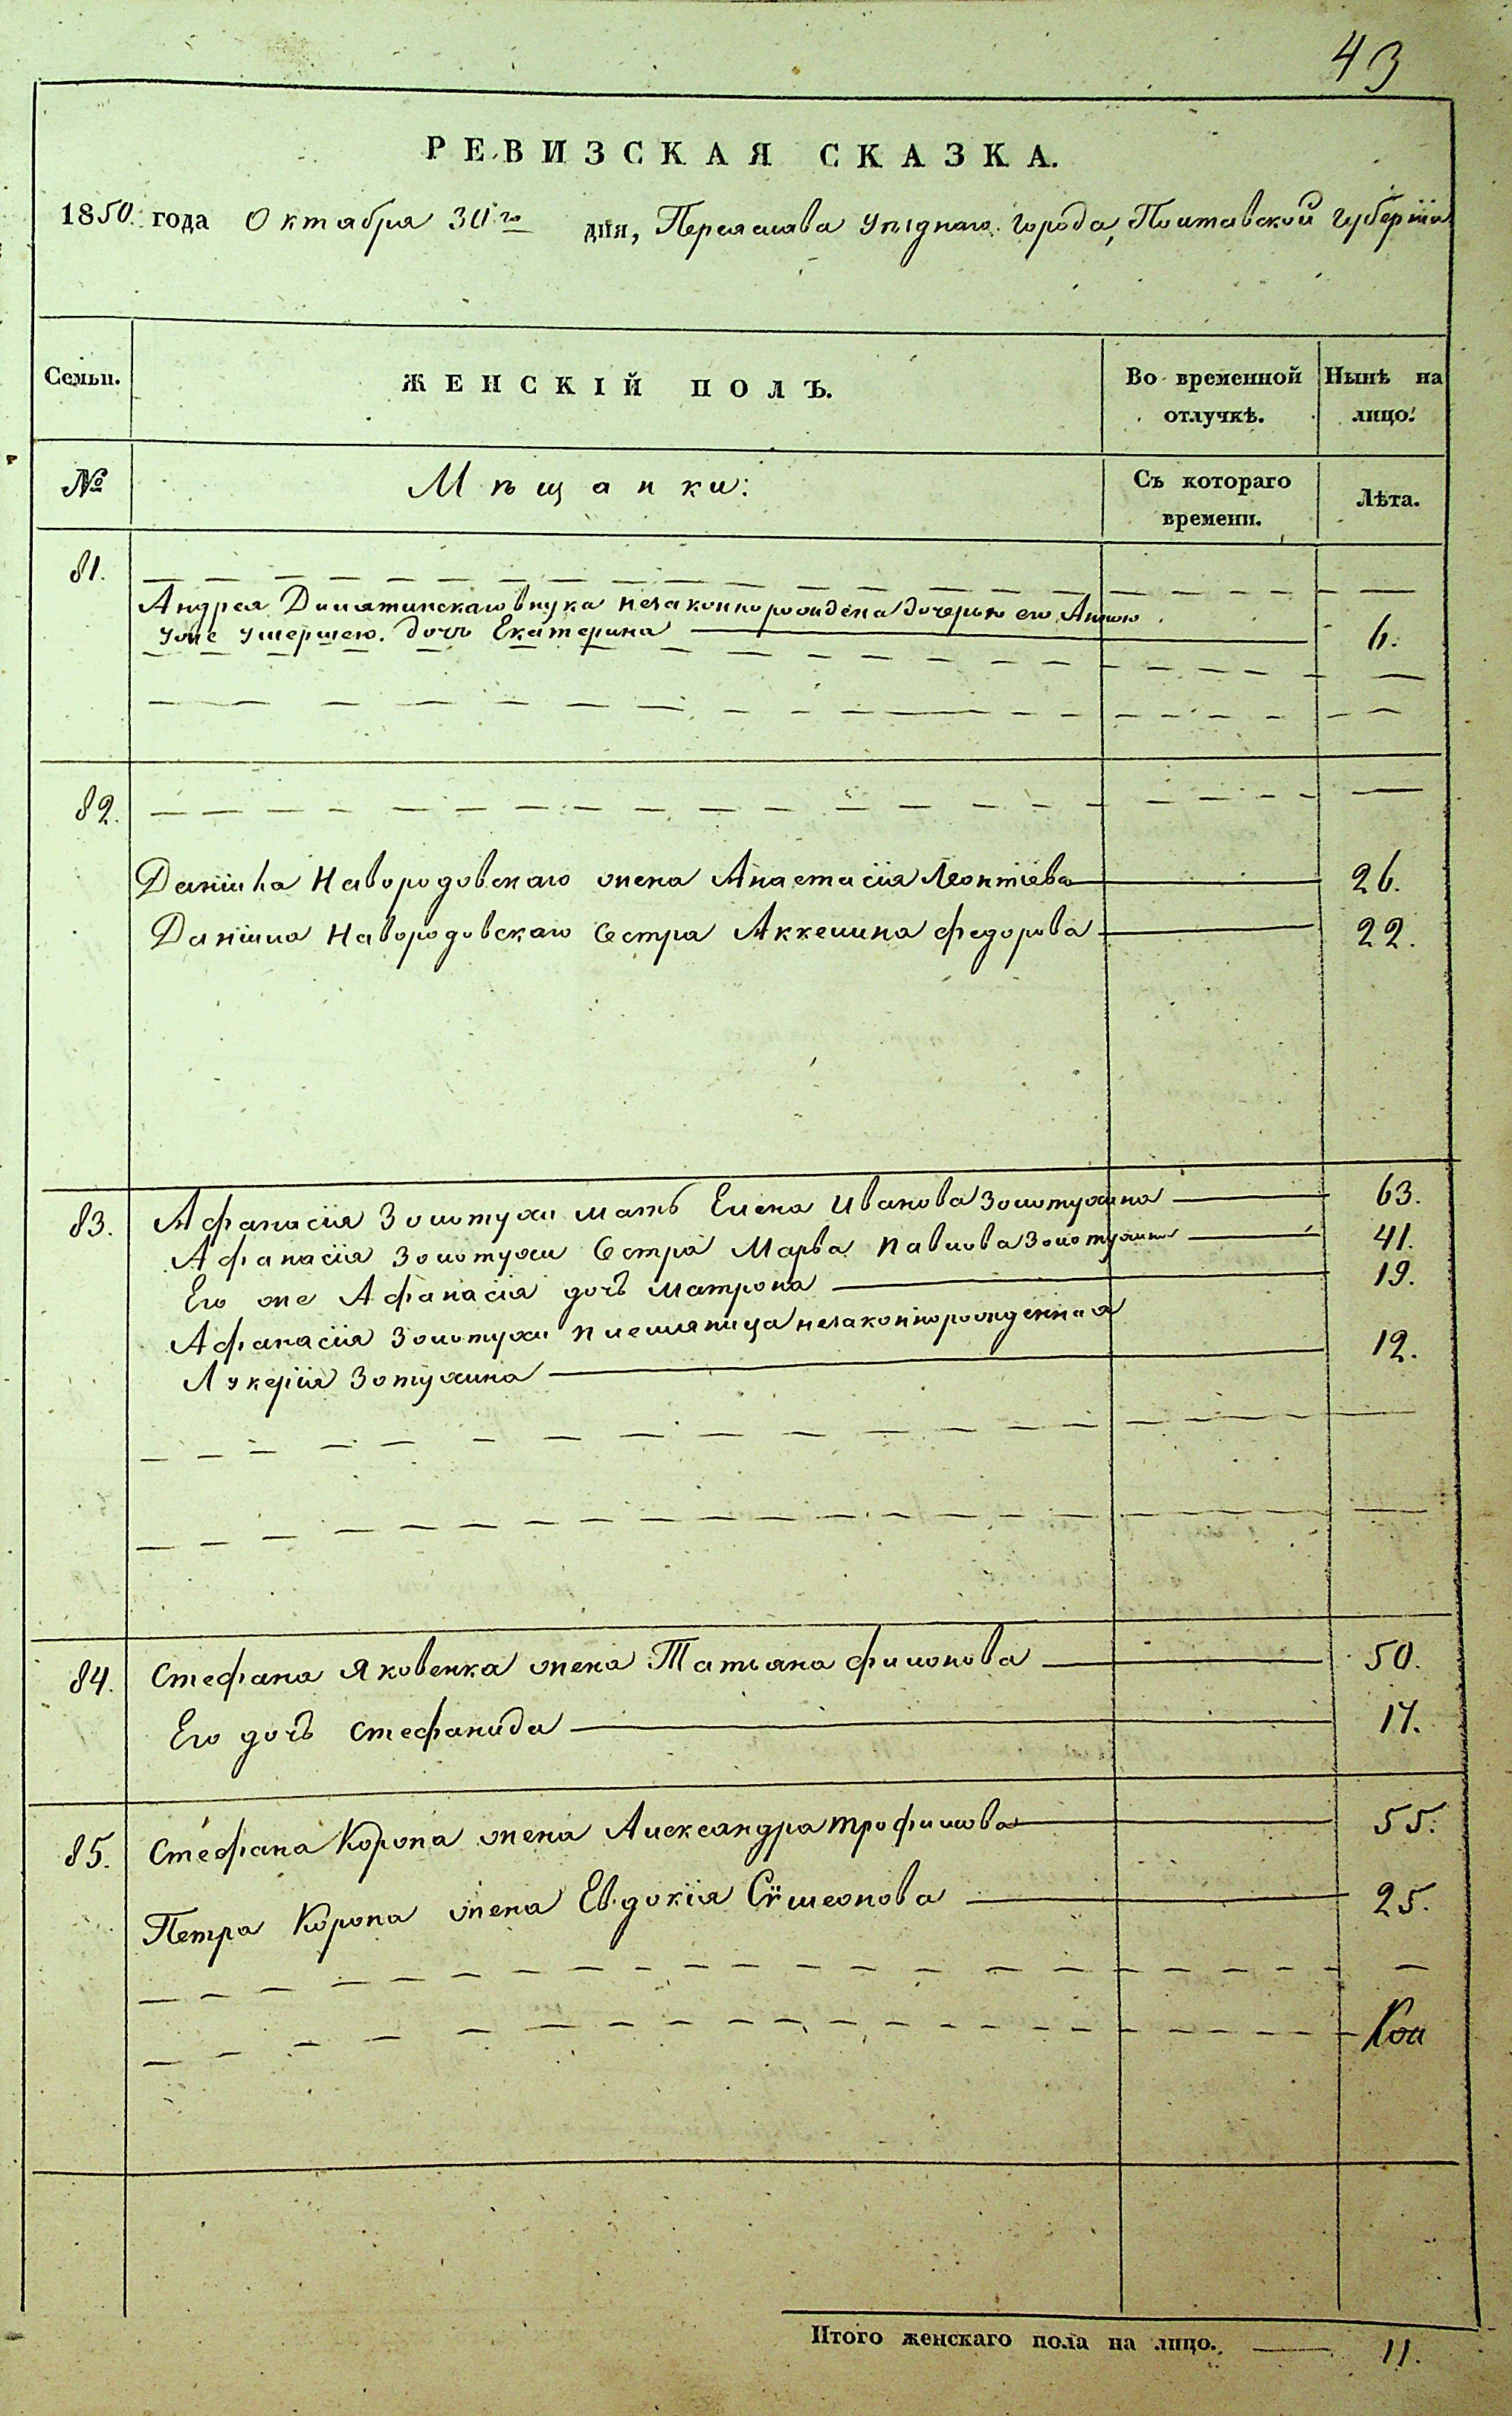 43
РЕВИЗСКАЯ СКАЗКА.
1850. года Октября 30го дня, Переяслава уѣзднаго города, Полтавской губерніи
Семьи. ЖЕНСКІЙ ПОЛЪ. Во временной отлучкѣ. Нынѣ на лицо.
№ Мѣщанки: Съ котораго времени. Лѣта.
81.
Андрея внука незаконнорождена дочерью его Анною
уже умершею. дочь Екатерина 6.
82.
Даніила Навородовскаго жена Анастасія Леонтіева 26.
Даніила Навородовскаго сестра Аккелина Федорова 22.
83. Афанасія Золотухи мать Елена Иванова Золотухина 63.
Афанасія Золотухи сестра Марѳа Павлова Золотухина 41.
Его же Афанасія дочь Матрона 19.
Афанасія Золотухи племяница незаконнорожденная
Лукерія Зотухина 12.
84. Стефана Яковенка жена Татіана Филонова 50.
Его дочь Стефанида 17.
85. Стефана Коропа жена Александра Трофимова 55.
Петра Коропа жена Евдокія Сѵмеонова 25.
Итого женскаго пола на лицо. 11.